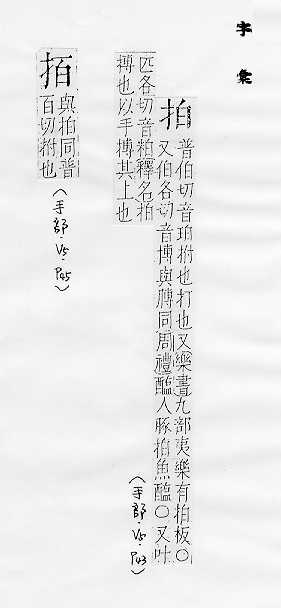 字彙
拍
普伯切音珀拊也打也又樂書九部夷樂有拍板○
又伯各切音博與膊同周禮醢人豚拍魚醢○又叶
匹各切音粕釋名拍
搏也以手搏其上也
(手部·V5·P43)
拍
與拍同普
百切拊也
(手部·V5·P45)